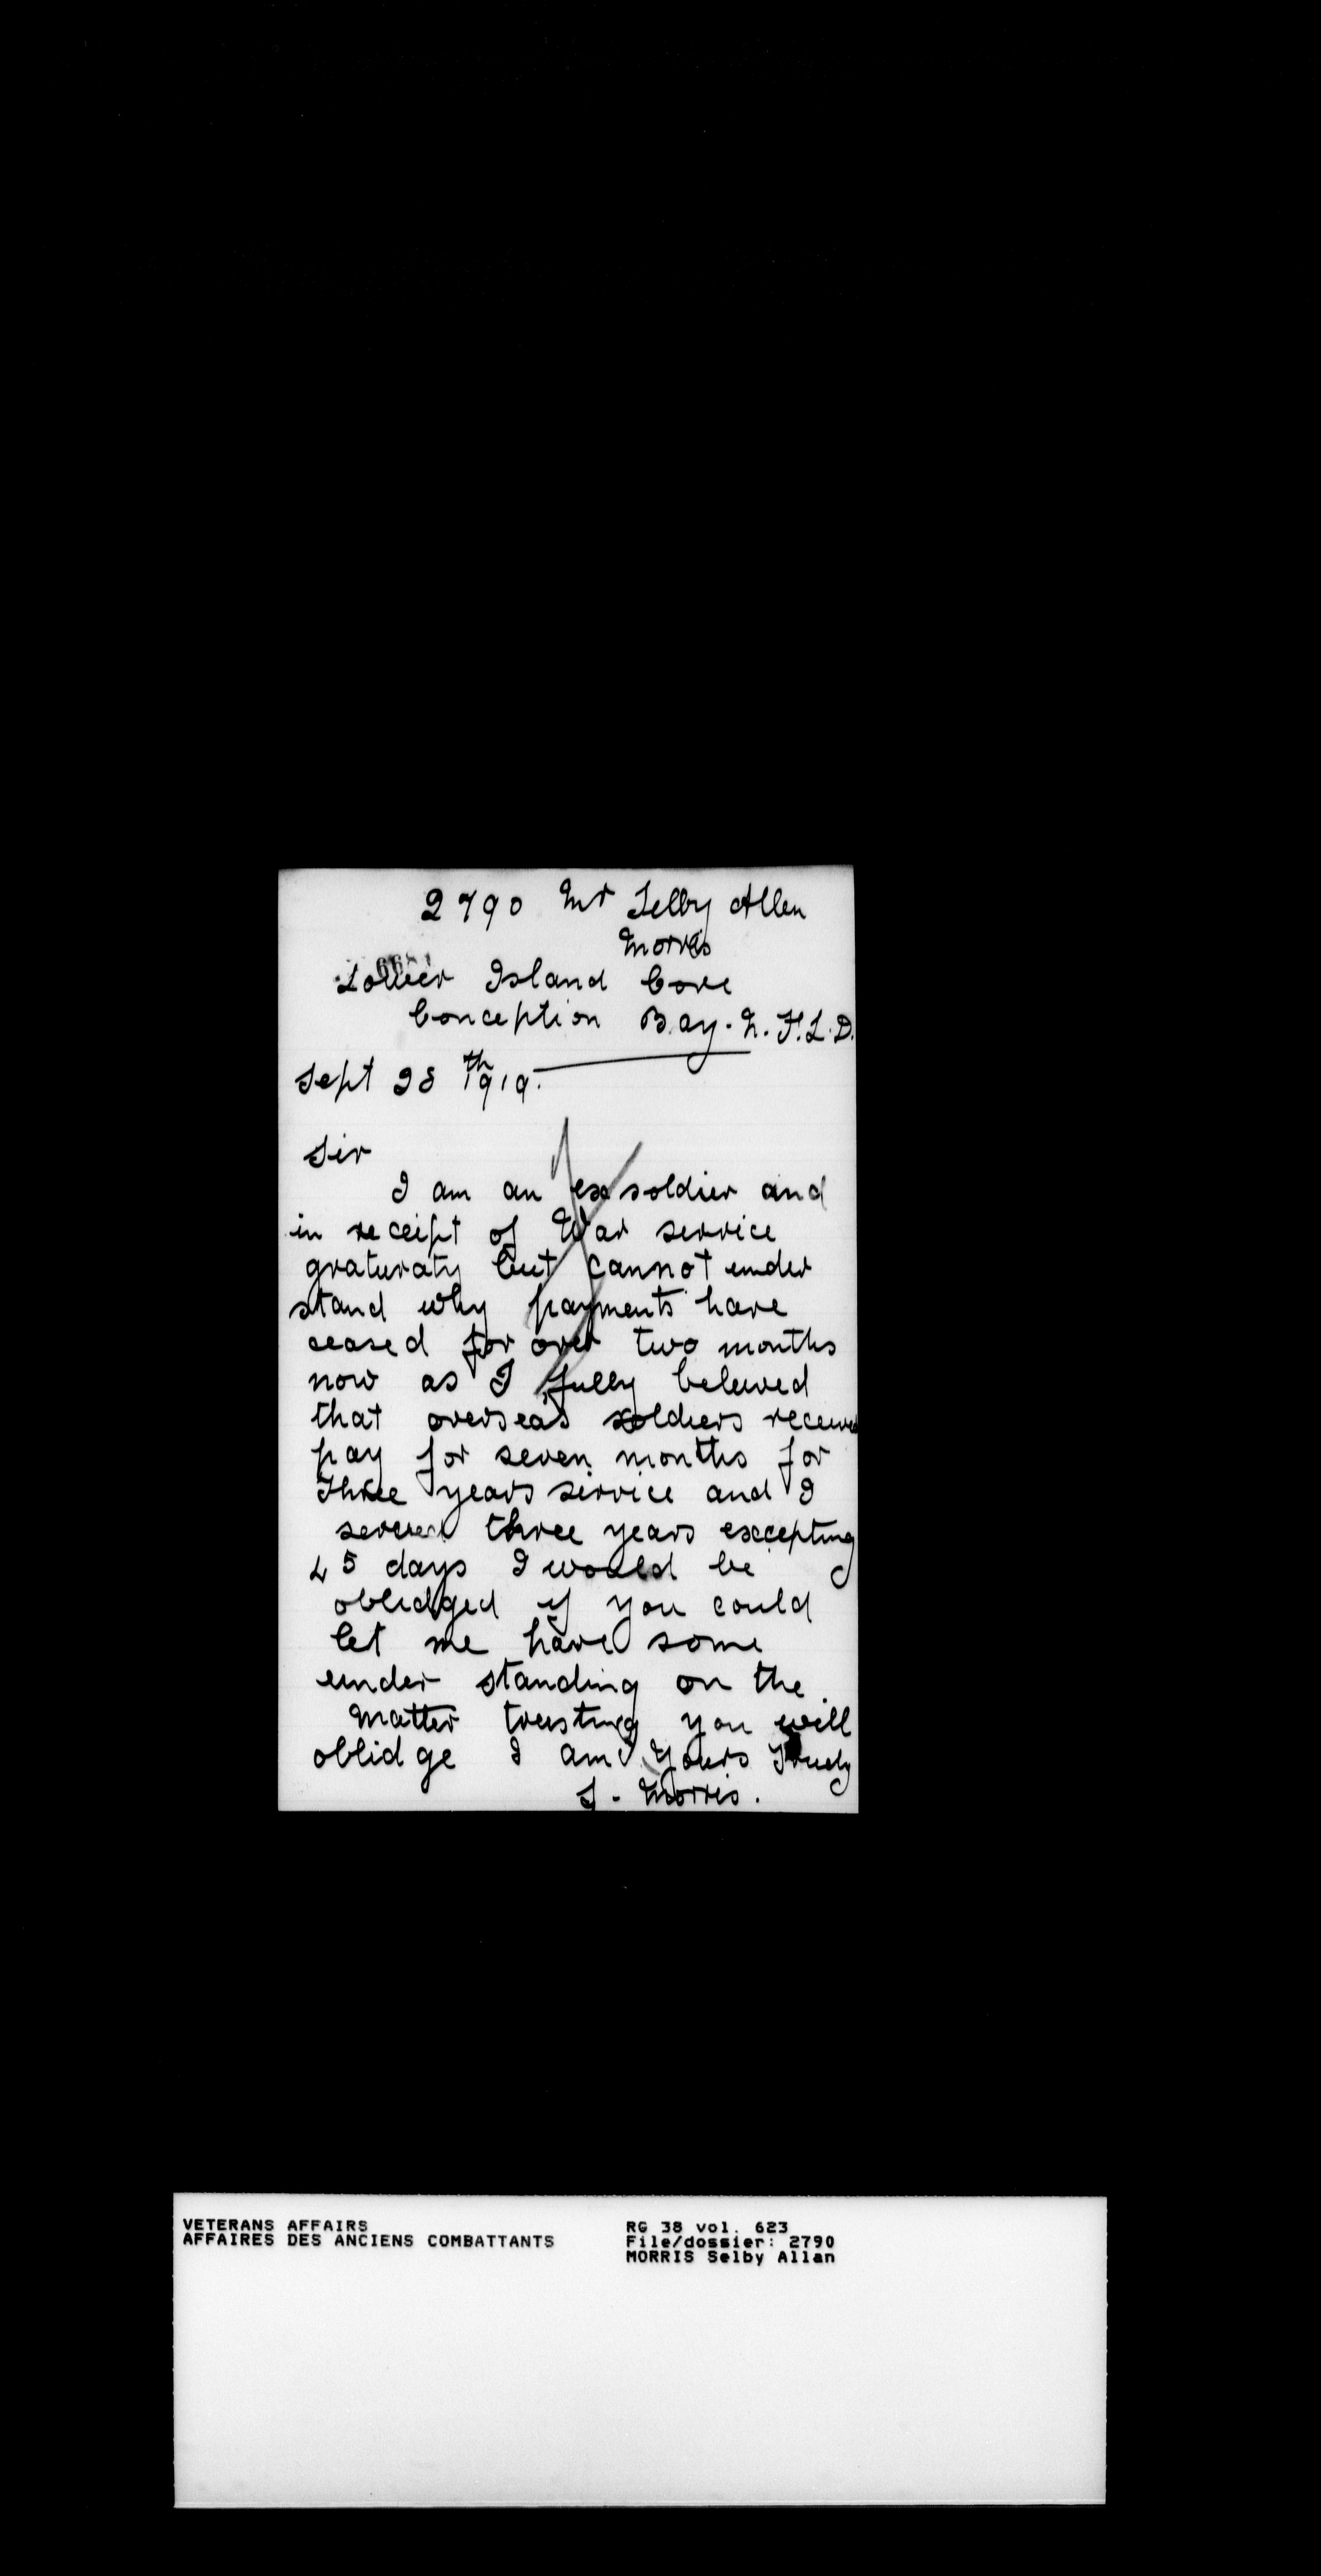 2790 Mr Selby Allen
Morris
Lower Island Cove
Conception Bay. N.F.L.D.
Sept 28th 1919.
Sir
I am an ex soldier and
in receipt of War service
graturaty but cannot under
stand why payments have
ceased for over two months
now as I fully beleived
that overseas soldiers received
pay for seven months for
Three years service and I
served three years excepting
45 days I would be
oblidged if you could
let me have some
under standing on the
Matter trusting you will
oblidge I am Yours Truly
S. Morris.
VETERANS AFFAIRS
AFFAIRES DES ANCIENS COMBATTANTS
RG 38 vol. 623
File/dossier: 2790
MORRIS Selby Allan